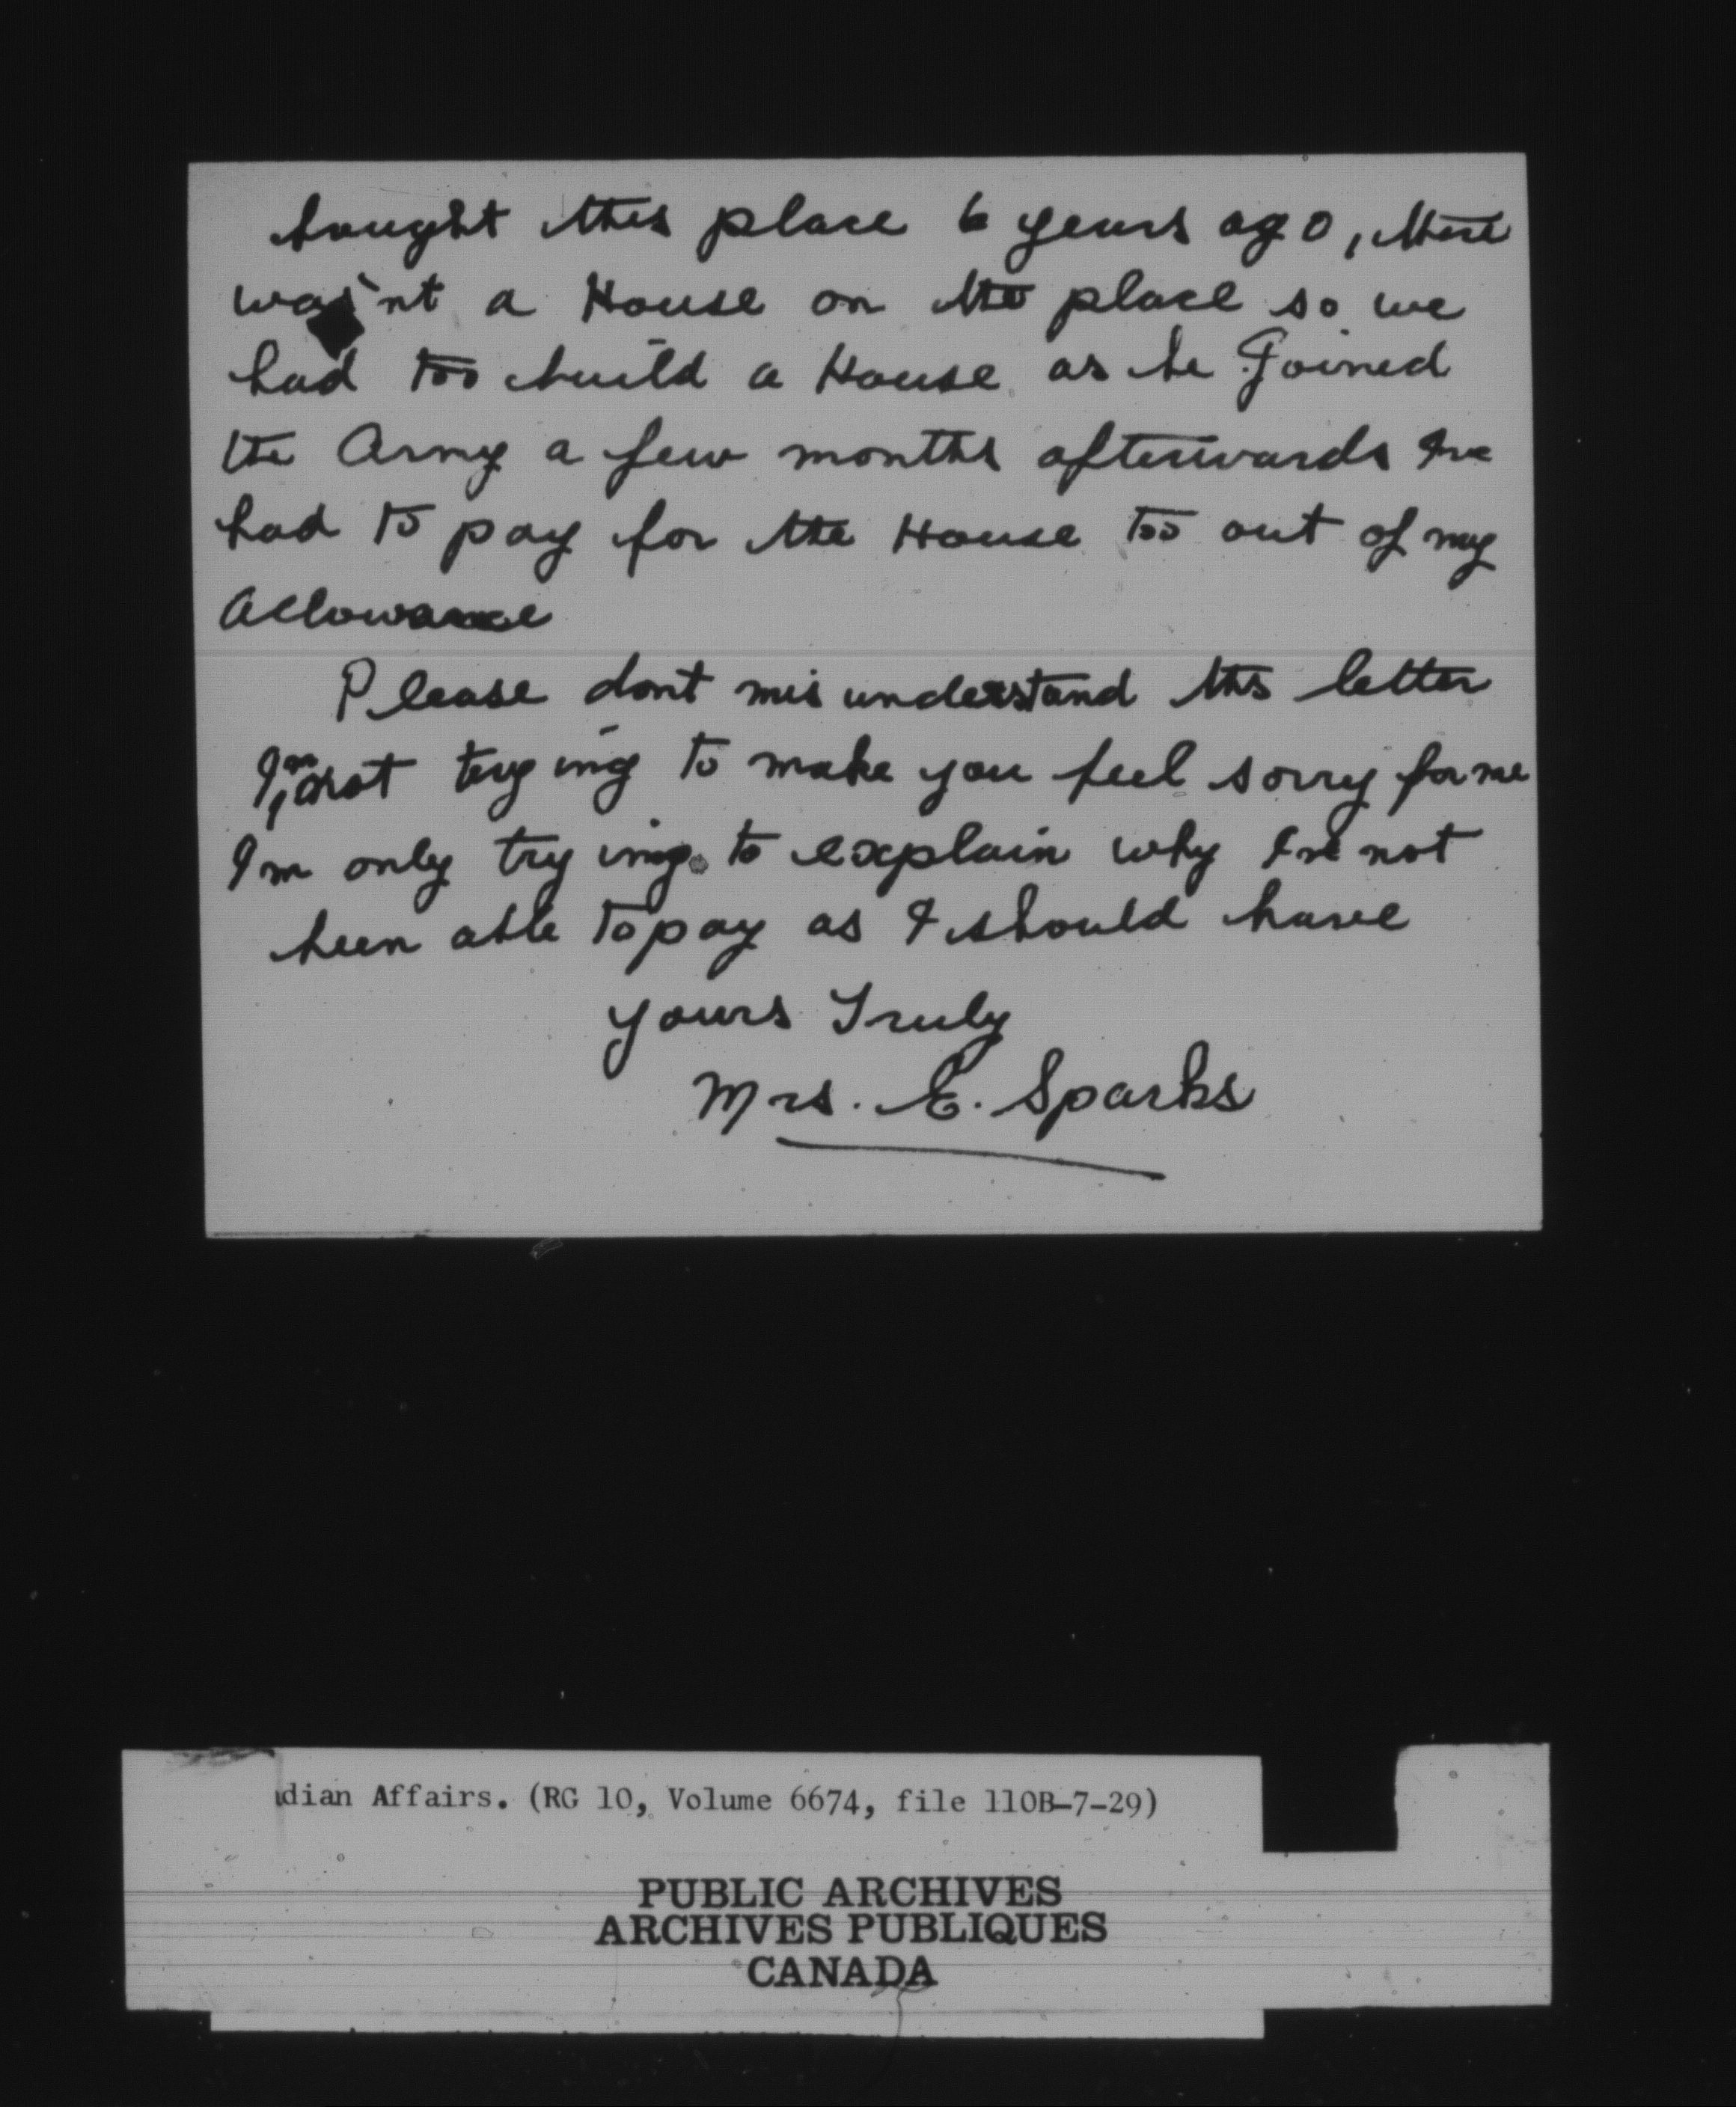 bought this place 6 years ago, there
was'nt a House on the place so we
had too build a House as he Joined
the Army a few months afterwards I've
had to pay for the House too out of my
Allowance
Please dont mis understand this letter
I'm not trying to make you feel sorry for me
I'm only trying to explain why I've not
been able to pay as I should have
yours Truly
Mrs. E. Sparks
dian Affairs. (RG 10, Volume 6674, file 110B-7-29)
PUBLIC ARCHIVES
ARCHIVES PUBLIQUES
CANADA